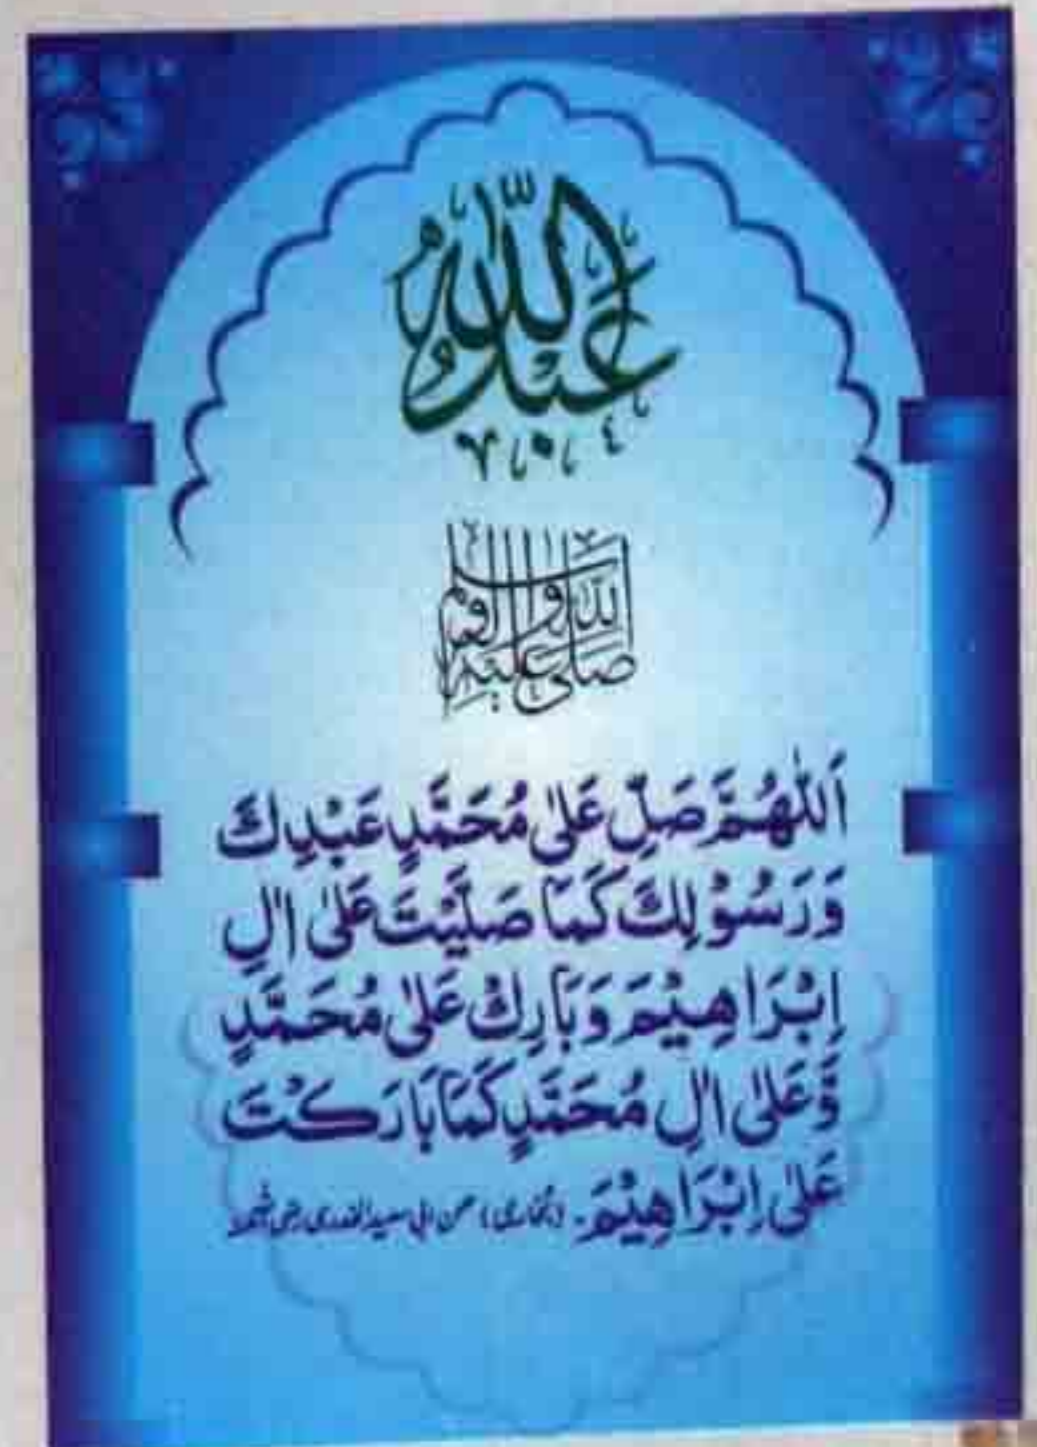 عَبْدُ اللّٰهِ
صَلَّى اللّٰهُ عَلَيْهِ وَآلِهٖ وَسَلَّمَ
اَللّٰهُمَّ صَلِّ عَلٰى مُحَمَّدٍ عَبْدِكَ
وَرَسُوْلِكَ كَمَا صَلَّيْتَ عَلٰى اٰلِ
اِبْرَاهِيْمَ وَبَارِكْ عَلٰى مُحَمَّدٍ
وَّعَلٰى اٰلِ مُحَمَّدٍ كَمَا بَارَكْتَ
عَلٰى اِبْرَاهِيْمَ. (بخاری) عن ابی سعید الخدری رضی اللہ عنہ